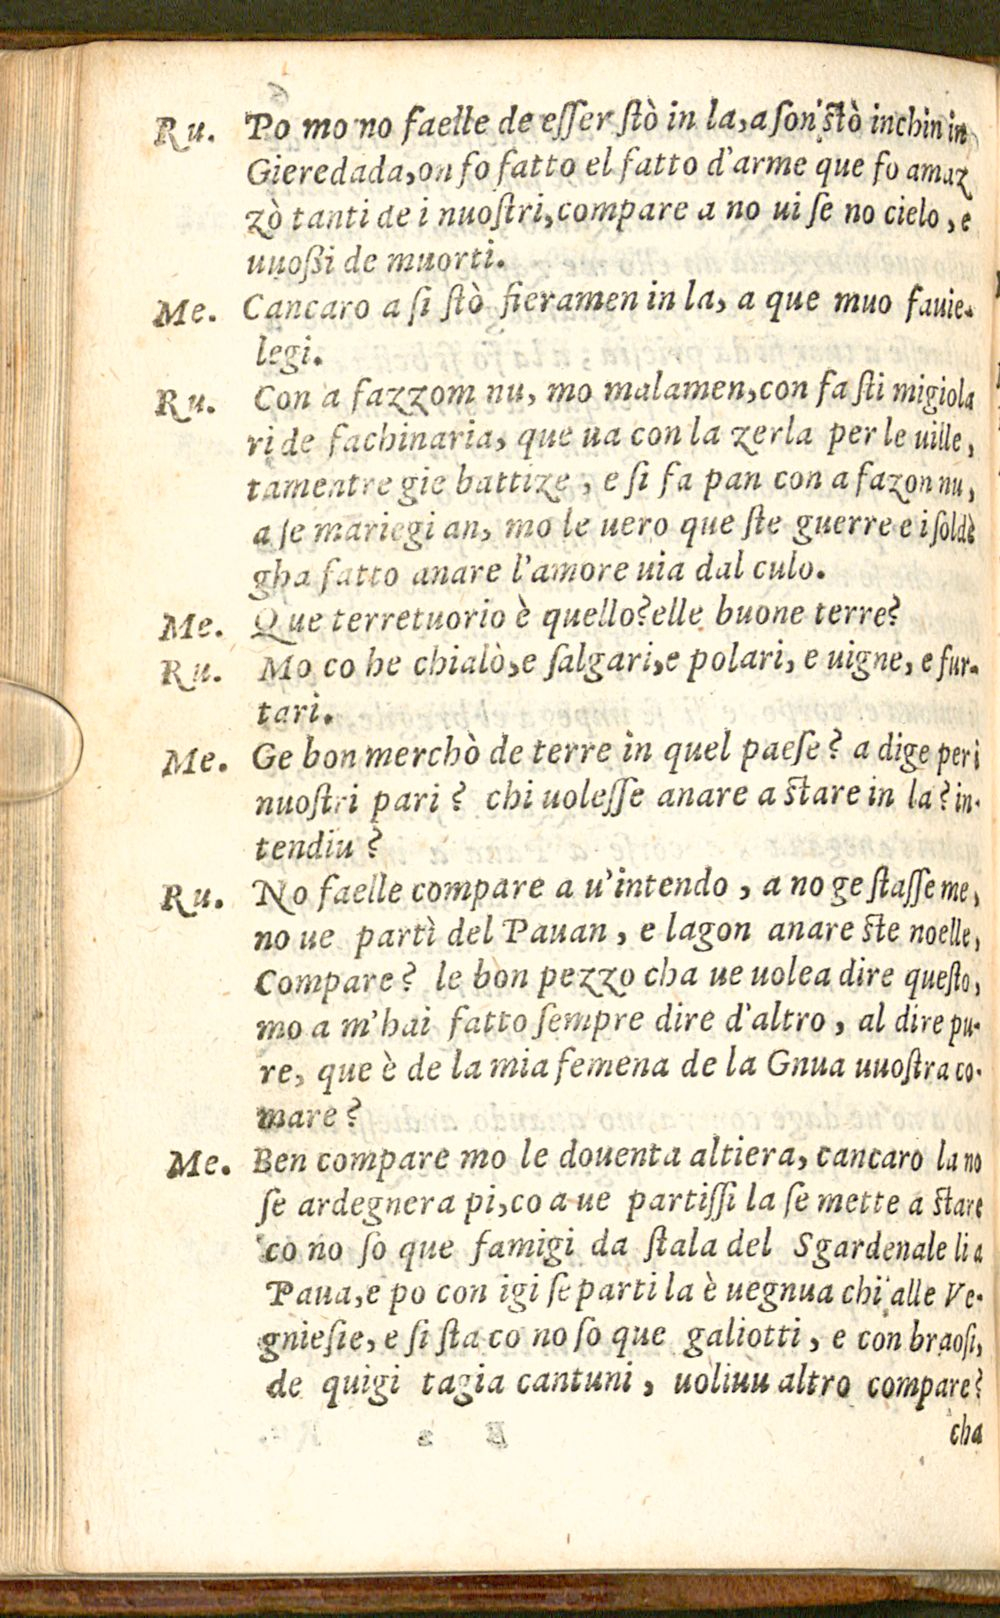 Ru. Po mo no faelle de esser stò in la, a son stò inchin in
Gieredada, on fo fatto el fatto d'arme que fo amaz
zò tanti de i nuostri, compare a no ui se no cielo, e
uuoßi de muorti.
Me. Cancaro a si stò fieramen in la, a que muo fauie-
legi.
Ru. Con a fazzom nu, mo malamen, con fa sti migiola
ri de fachinaria, que ua con la zerla per le uille,
tamentre gie battize, e si fa pan con a fazon nu,
a se mariegi an, mo le uero que ste guerre e i soldè
gha fatto anare l'amore uia dal culo.
Me. Que terretuorio è quello? elle buone terre?
Ru. Mo co he chialò, e salgari, e polari, e uigne, e fur-
tari.
Me. Ge bon merchò de terre in quel paese? a dige per i
nuostri pari? chi uolesse anare a stare in la? in-
tendiu?
Ru. No faelle compare a u'intendo, a no ge stasse me,
no ue partì del Pauan, e lagon anare ste noelle,
Compare? le bon pezzo cha ue uolea dire questo,
mo a m'hai fatto sempre dire d'altro, al dire pu-
re, que è de la mia femena de la Gnua uuostra co-
mare?
Me. Ben compare mo le douenta altiera, cancaro la no
se ardegnera pi, co a ue partissi la se mette a stare
co no so que famigi da stala del Sgardenale li a
Paua, e po con igi se parti la è uegnua chi alle Ve-
gniesie, e si sta co no so que galiotti, e con braosi,
de quigi tagia cantuni, uoliuu altro compare?
cha